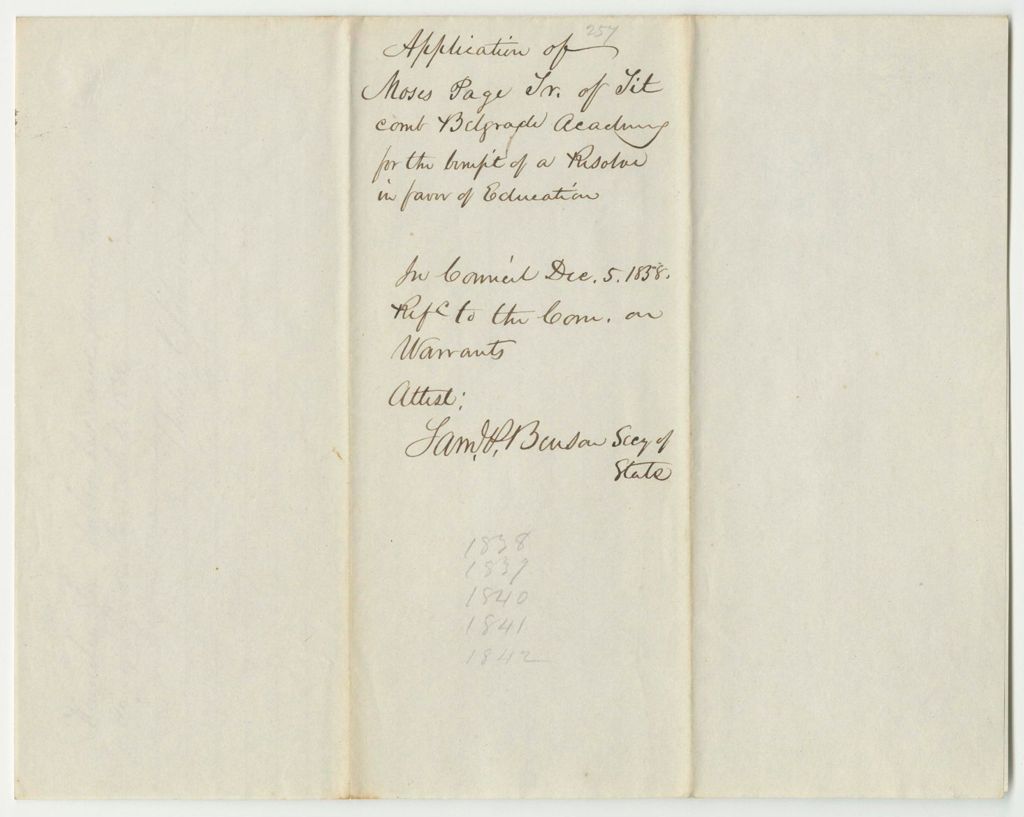 257
Application of
Moses Page Tr. of Tit
comb Belgrade Academy
for the benefit of a Resolve
in favor of Education
In Council Dec. 5. 1838.
Refd to the Com. on
Warrants
Attest:
Saml. P. Benson Secy of
State
1838
1839
1840
1841
1842